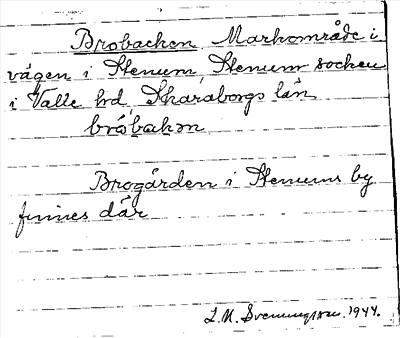 Brobacken Markområde i
vägen i Stenum, Stenum socken
i Valle hd, Skaraborgs län
bróbackən
Brogården i Stenums by
finnes där
L.M. Svenungsson. 1944.